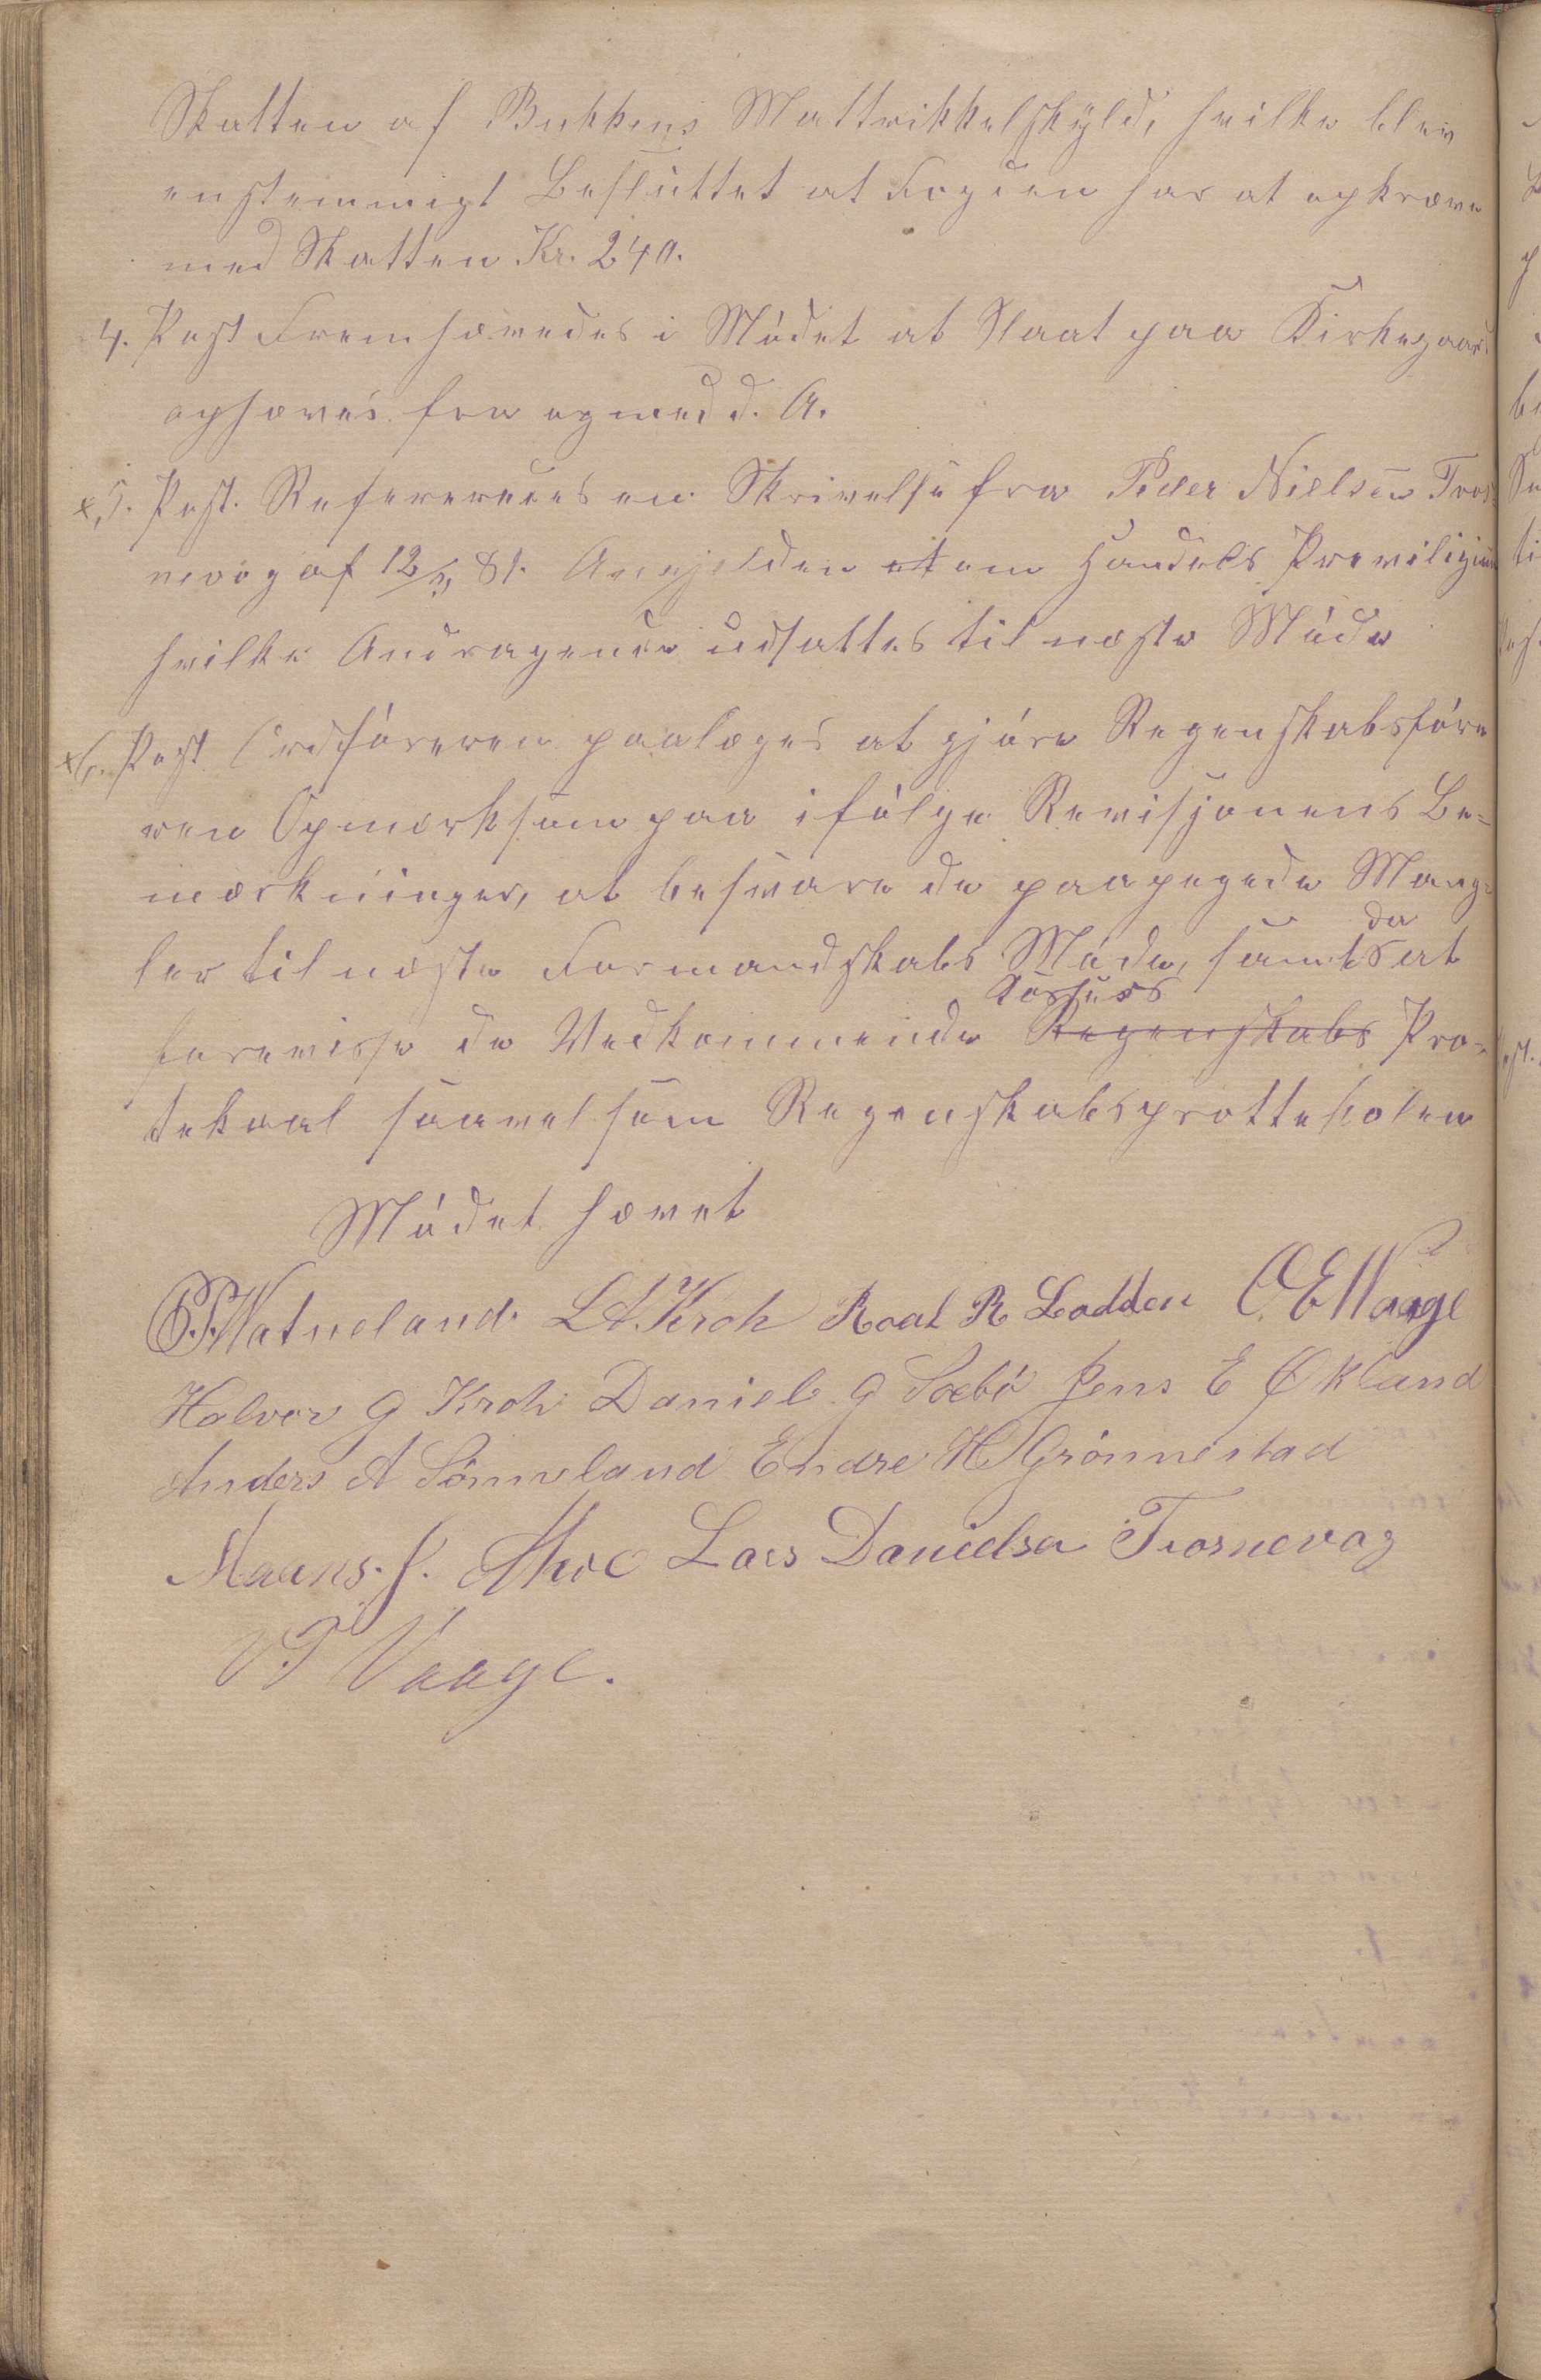 Skatten af Bukkens Mattrikkelskyld, hvilke blev
enstemmigt Besluttet at Fogden har at opkræve
med Skatten Kr. 240.
4. Post Fremhævedes i Mødet at Slaat paa Kirkegaard
ophæves fra og med d. A.
x 5. Post. Refereredes en Skrivelse fra Peder Nielsen Tros-
nevog af 12/3 81. Angjelden et om Handels Previligium
hvilke Andragende udsattes til næste Møde
x 6. Post Ordføreren paalæges at gjøre Regenskabsføre
ren Opmerksom paa ifølge Revisjonens Be-
mærkninger, at besvare de paapegede Mang-
ler til næste Formandskabs Møde, samt da at
forevisse de Vedkommende Kassers Regenskabs Pro-
tokoal saavelsom Regenskabsprottekolen
Mødet hævet
P.P.Watneland. L A Kroh Roal R Lodden O E Waage
Halvor G Kroh Daniel G Sæbø Jens E Økland
Anders A Sønneland Endre H Grønnestad
Maans. J. Lars Danielsen Trosnevog
V T Vaage.